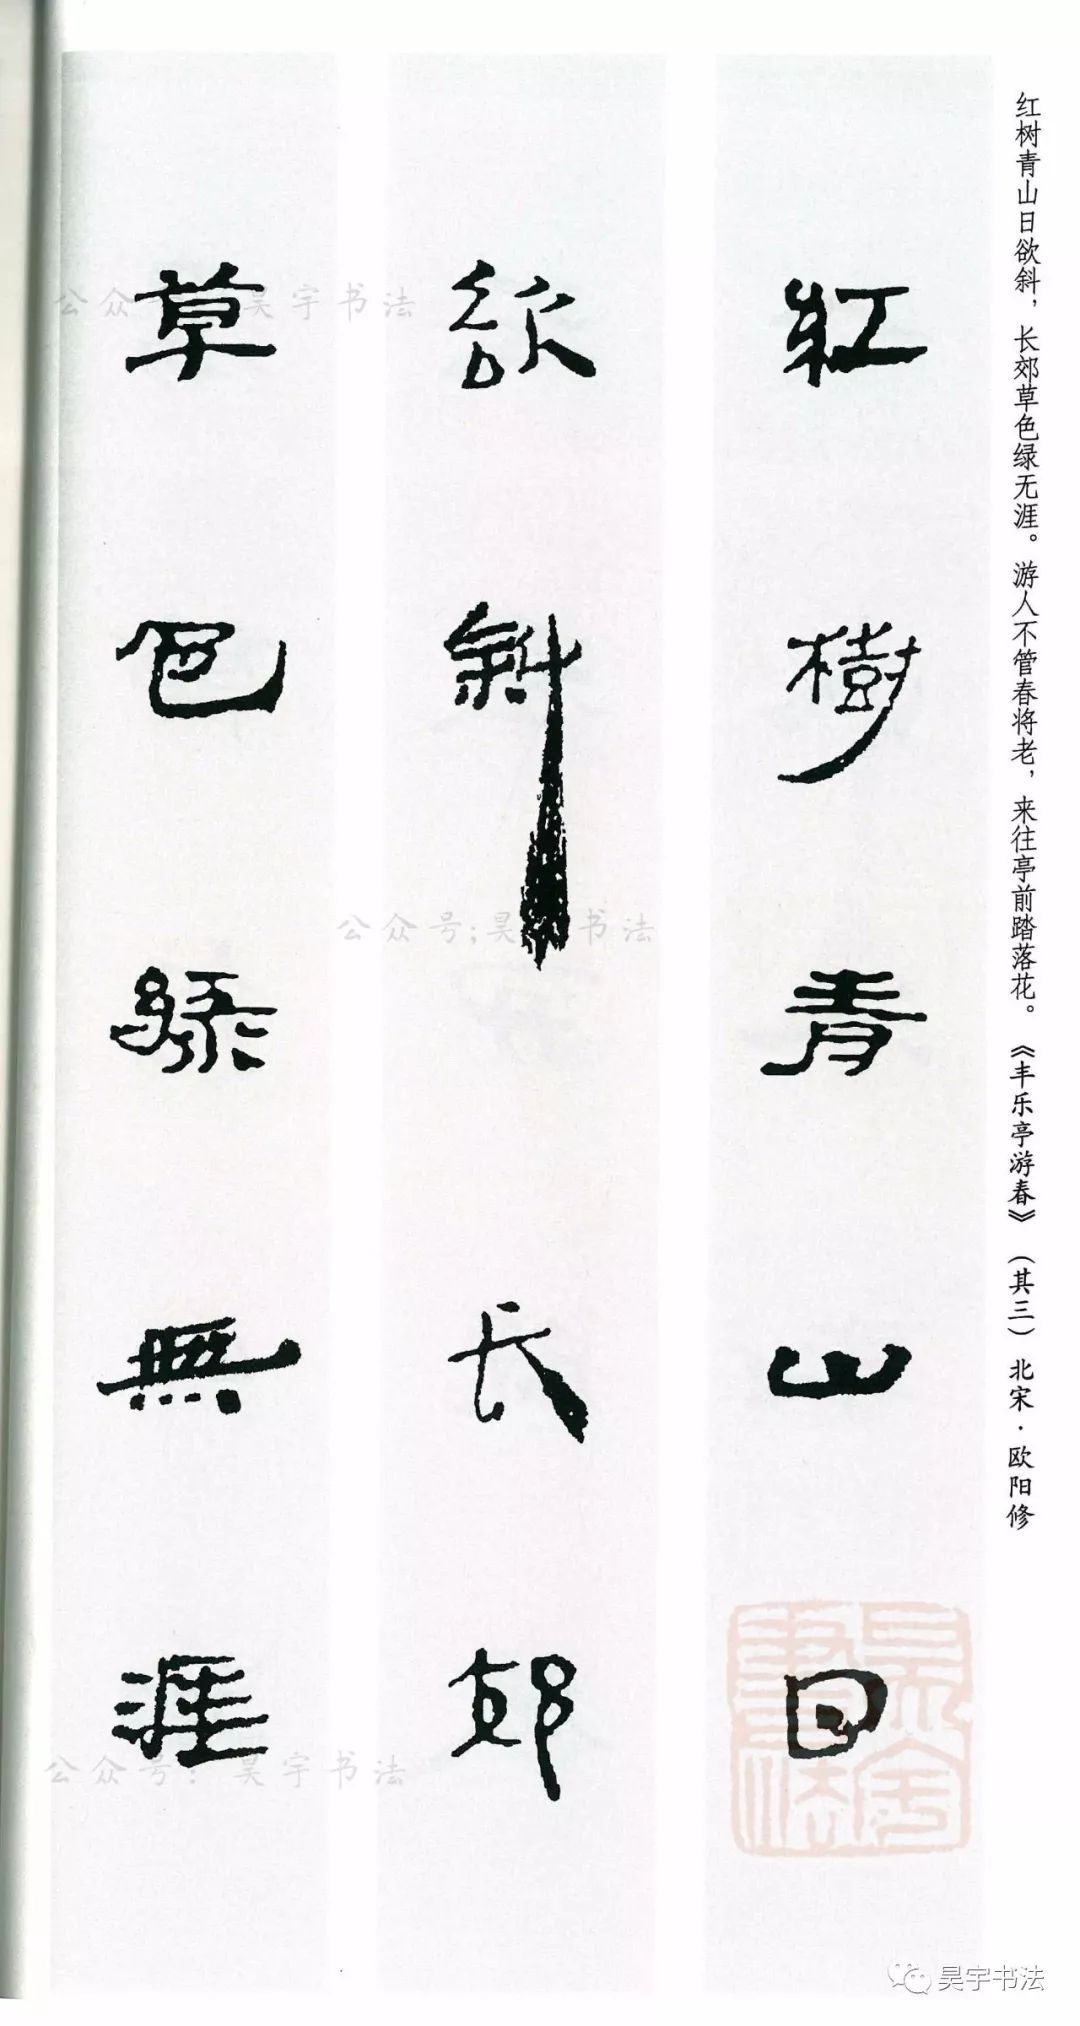 红树青山日欲斜，长郊草色绿无涯。游人不管春将老，来往亭前踏落花。《丰乐亭游春》（其三）北宋·欧阳修
紅樹青山日
欲斜长郊
草色绿無涯
公众 昊宇书法
公众号;昊 书法
公众号：昊宇书法
昊宇书法
昊宇书法